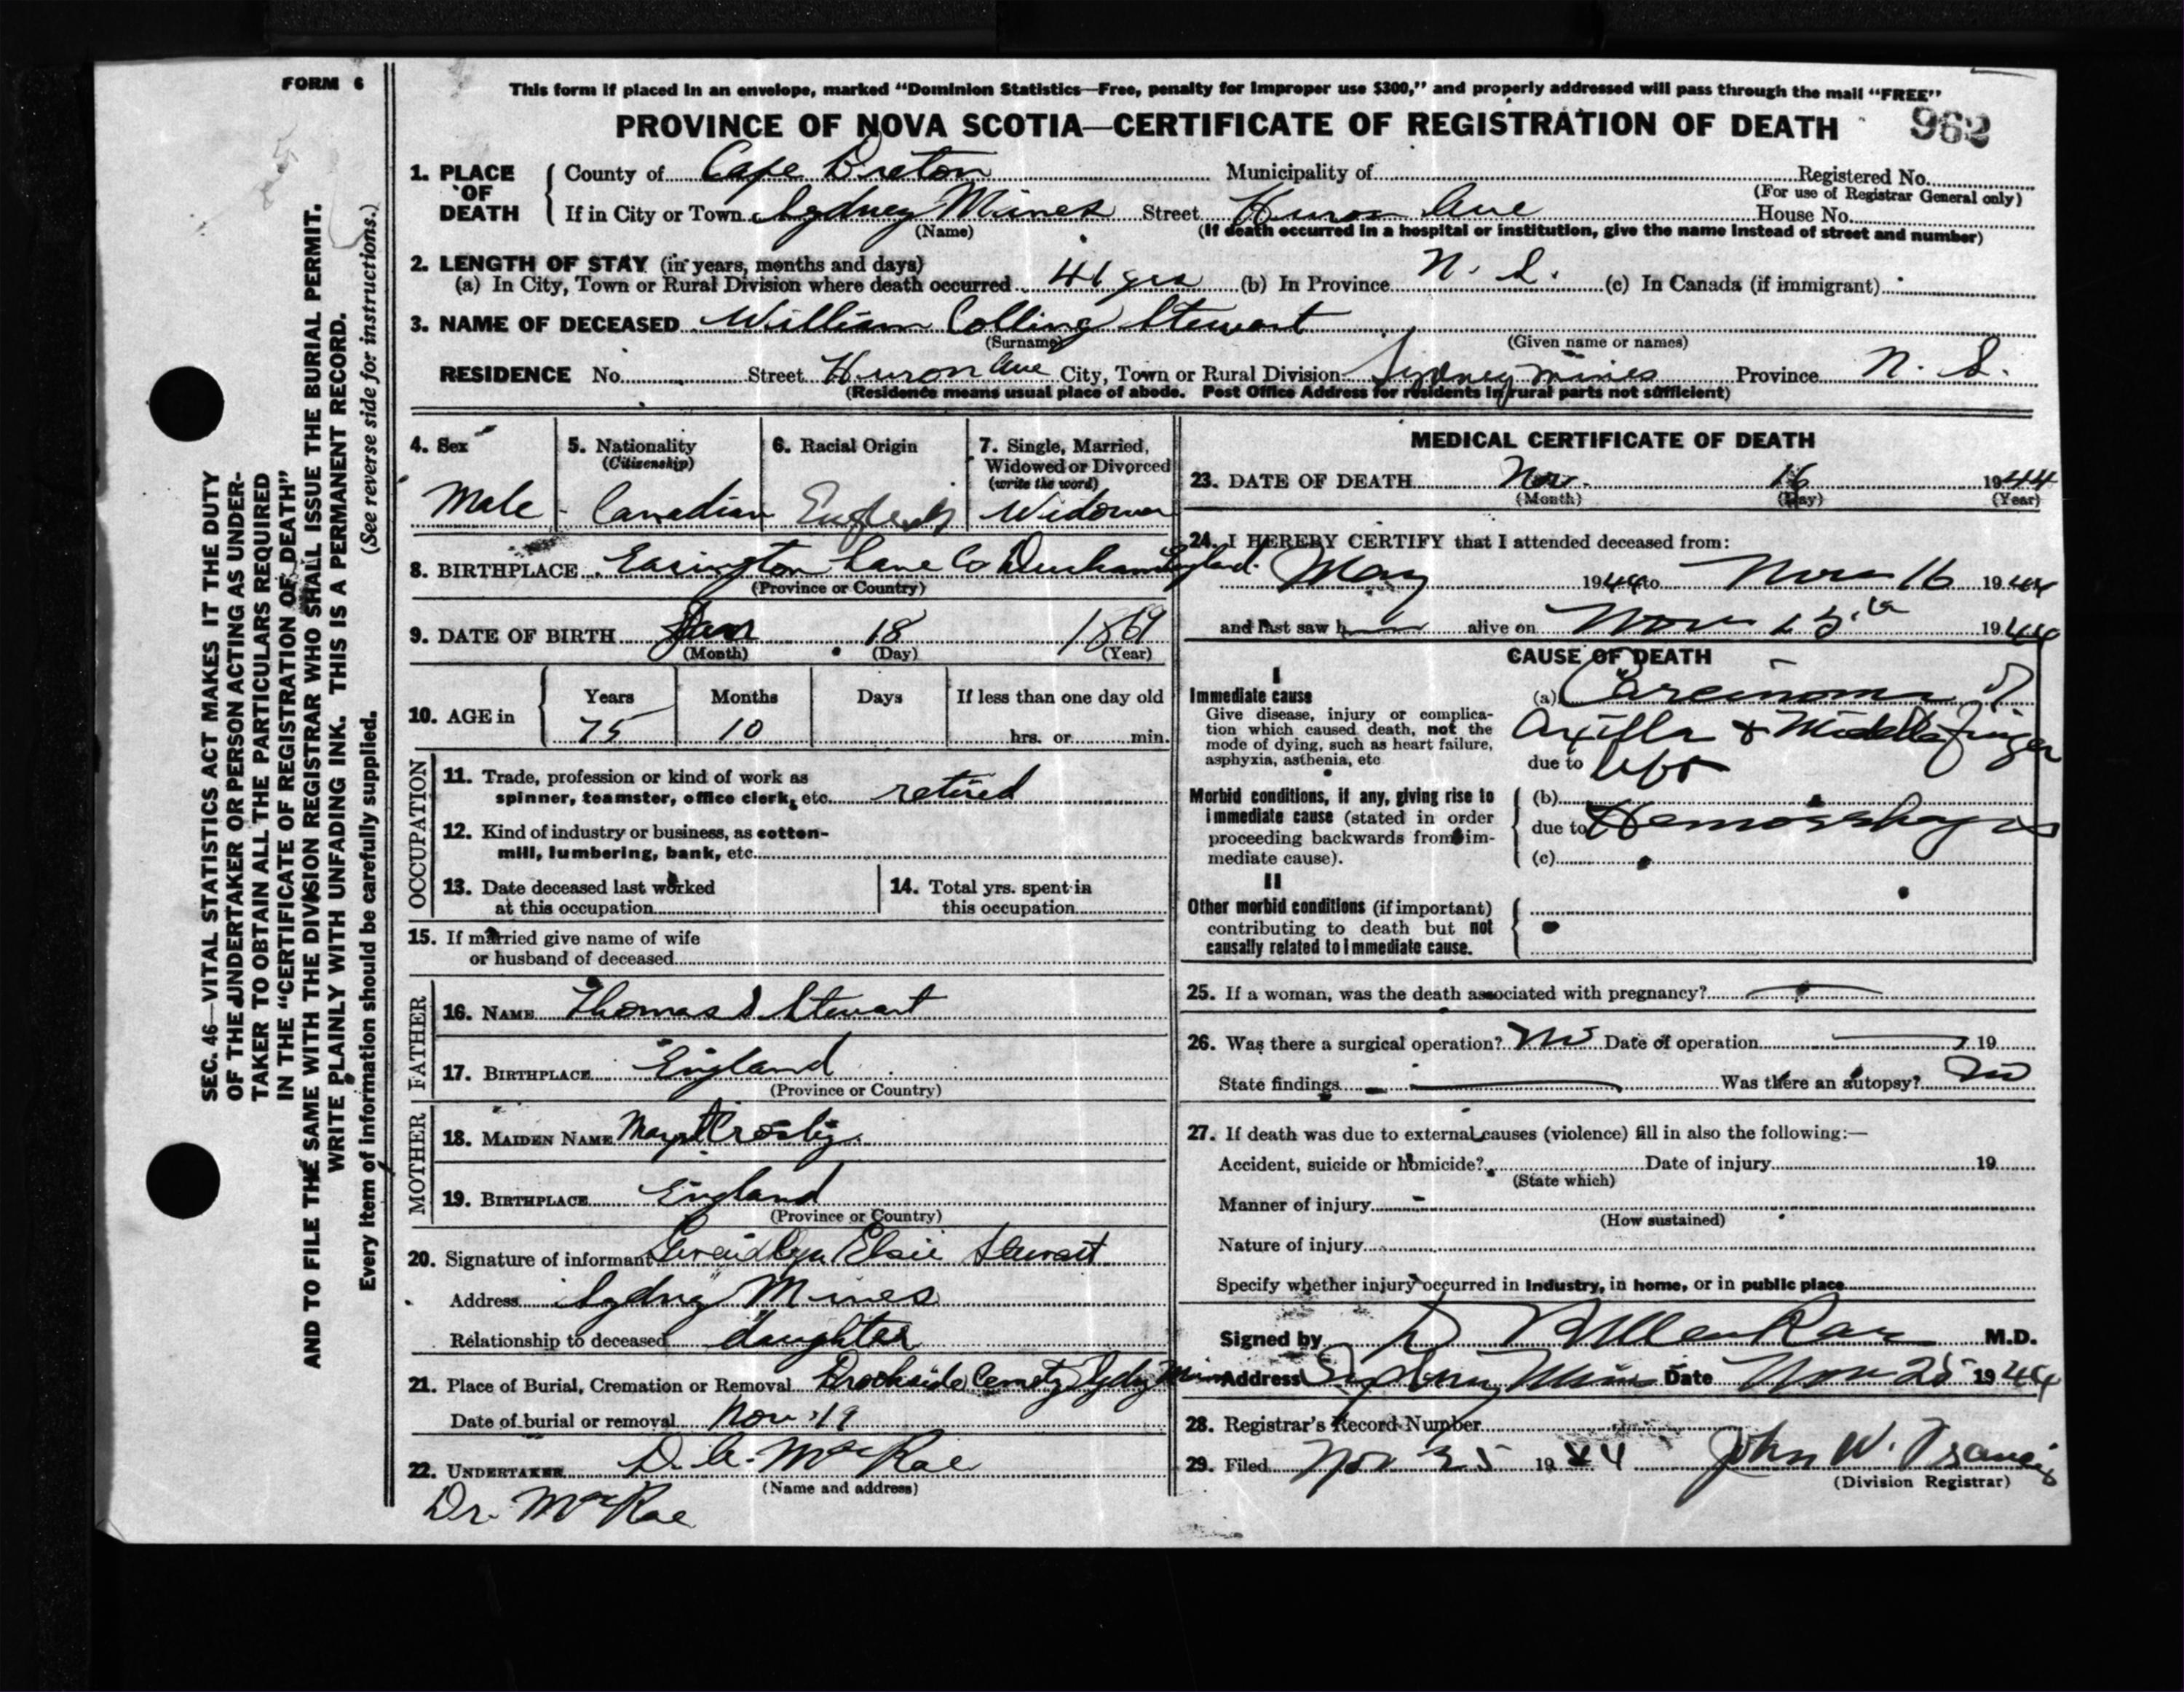 FORM 6
This form if placed in an envelope, marked “Dominion Statistics—Free, penalty for improper use $300,” and properly addressed will pass through the mail “FREE”
PROVINCE OF NOVA SCOTIA—CERTIFICATE OF REGISTRATION OF DEATH 962
1. PLACE OF DEATH County of Cape Breton Municipality of Registered No.
(For use of Registrar General only)
If in City or Town Sydney Mines Street Huron Ave House No.
(Name) (If death occurred in a hospital or institution, give the name instead of street and number)
2. LENGTH OF STAY (in years, months and days)
(a) In City, Town or Rural Division where death occurred 41 yrs (b) In Province N. S. (c) In Canada (if immigrant)
3. NAME OF DECEASED William Colling Stewart
(Surname) (Given name or names)
RESIDENCE No. Street Huron Ave City, Town or Rural Division Sydney Mines Province N. S.
(Residence means usual place of abode. Post Office Address for residents in rural parts not sufficient)
4. Sex 5. Nationality 6. Racial Origin 7. Single, Married,
(Citizenship) Widowed or Divorced
(write the word)
Male Canadian English Widower
8. BIRTHPLACE Easington Lane Co Durham England
(Province or Country)
9. DATE OF BIRTH Jan 18 1869
(Month) (Day) (Year)
10. AGE in Years Months Days If less than one day old
75 10 hrs. or min.
OCCUPATION
11. Trade, profession or kind of work as
spinner, teamster, office clerk, etc. retired
12. Kind of industry or business, as cotton-
mill, lumbering, bank, etc.
13. Date deceased last worked
at this occupation
14. Total yrs. spent in
this occupation
15. If married give name of wife
or husband of deceased
FATHER
16. NAME Thomas S Stewart
17. BIRTHPLACE England
(Province or Country)
MOTHER
18. MAIDEN NAME Crosby
19. BIRTHPLACE England
(Province or Country)
20. Signature of informant Elsie Stewart
Address Sydney Mines
Relationship to deceased daughter
21. Place of Burial, Cremation or Removal Brookside Cemety Sydny Mines
Date of burial or removal Nov 19
22. UNDERTAKER D. A. McRae
(Name and address)
Dr. McRae
MEDICAL CERTIFICATE OF DEATH
23. DATE OF DEATH Nov. 16 1944
(Month) (Day) (Year)
24. I HEREBY CERTIFY that I attended deceased from:
May 1944 to Nov 16 1944
and last saw h alive on Nov 15th 1944
CAUSE OF DEATH
I
Immediate cause
Give disease, injury or complica-
tion which caused death, not the
mode of dying, such as heart failure,
asphyxia, asthenia, etc
(a) Carcinoma of
Axilla & Middle finger
due to left
Morbid conditions, if any, giving rise to
immediate cause (stated in order
proceeding backwards from im-
mediate cause).
(b)
due to Hemorrhages
(c)
II
Other morbid conditions (if important)
contributing to death but not
causally related to immediate cause.
25. If a woman, was the death associated with pregnancy?
26. Was there a surgical operation? No Date of operation 19
State findings Was there an autopsy? No
27. If death was due to external causes (violence) fill in also the following:—
Accident, suicide or homicide? Date of injury 19
(State which)
Manner of injury
(How sustained)
Nature of injury
Specify whether injury occurred in industry, in home, or in public place
Signed by M.D.
Address Sydney Mines Date Nov 25 1944
28. Registrar's Record Number
29. Filed Nov 25 1944 John W. Francis
(Division Registrar)
SEC. 46—VITAL STATISTICS ACT MAKES IT THE DUTY
OF THE UNDERTAKER OR PERSON ACTING AS UNDER-
TAKER TO OBTAIN ALL THE PARTICULARS REQUIRED
IN THE “CERTIFICATE OF REGISTRATION OF DEATH”
AND TO FILE THE SAME WITH THE DIVISION REGISTRAR WHO SHALL ISSUE THE BURIAL PERMIT.
WRITE PLAINLY WITH UNFADING INK. THIS IS A PERMANENT RECORD.
Every item of information should be carefully supplied. (See reverse side for instructions.)